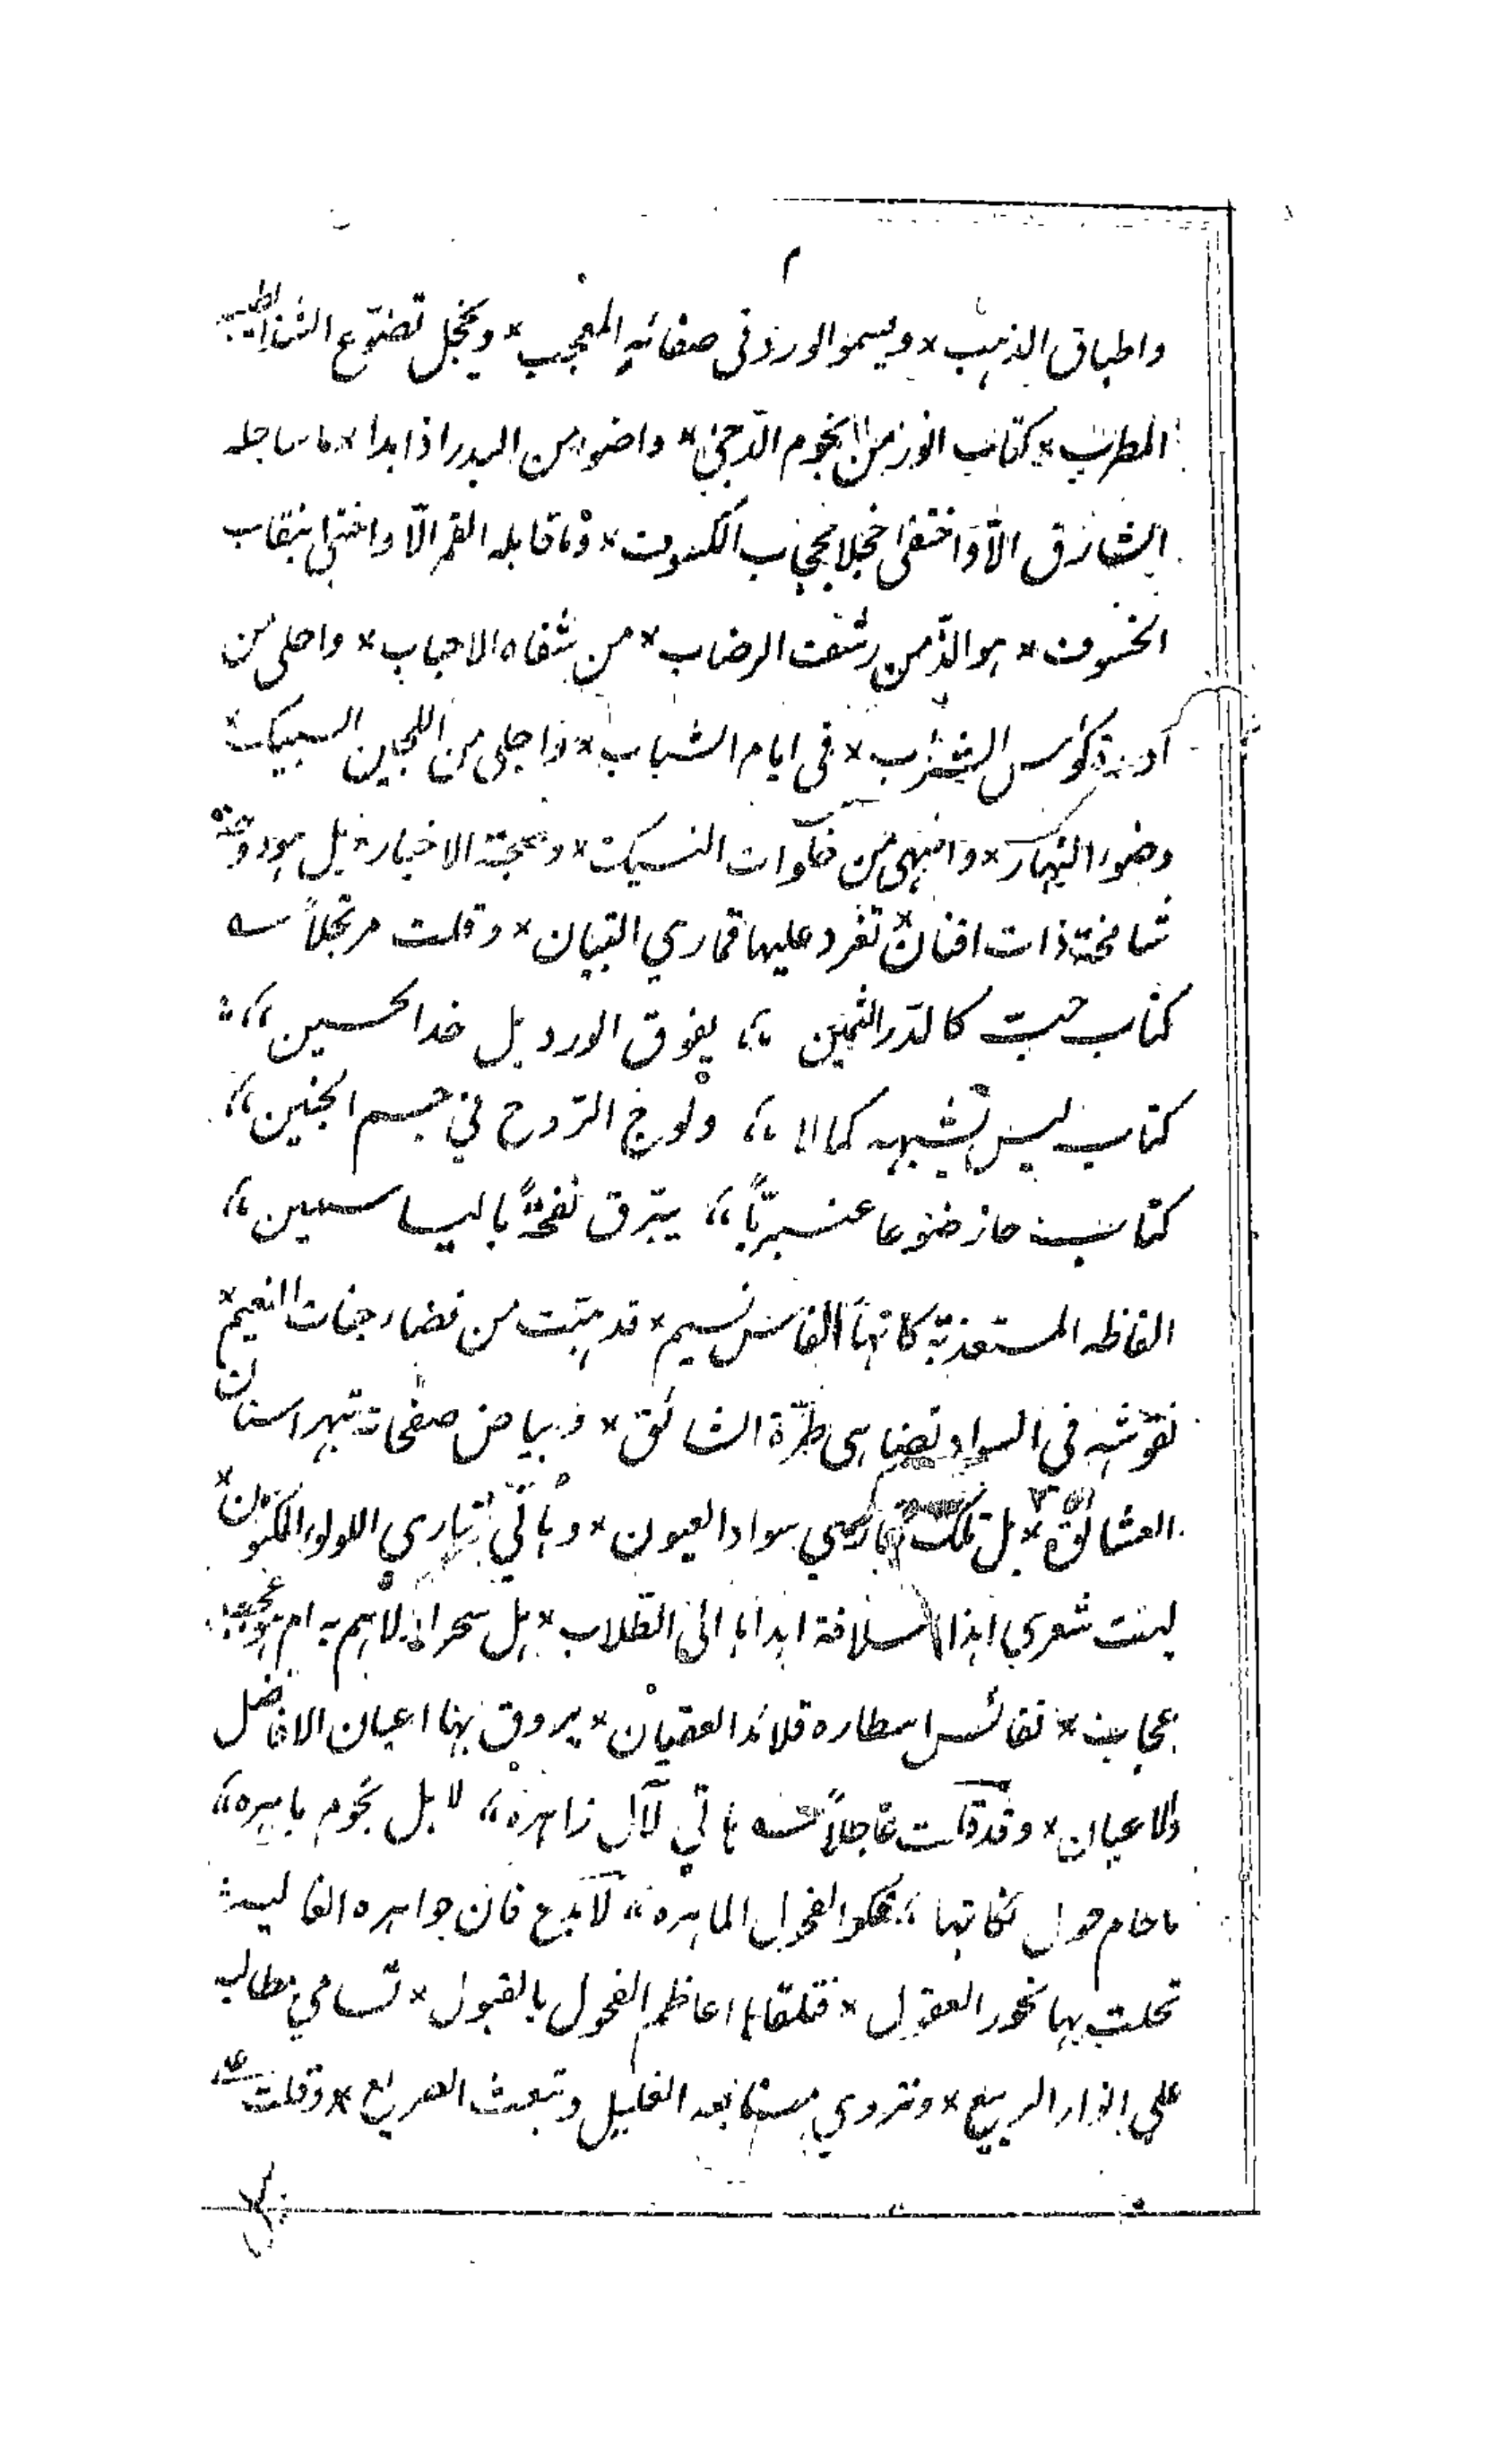 ٢
واطباق الذهب * ويسمو الورد فى صفائه المعجب * ويخجل تضوّع الشذا الطيب
المطرب * كتاب انور من نجوم الدّجىٰ * واضوء من البدر اذا بدا * ما ساجله
الشارق الّا واختفىٰ خجلا بحجاب الكسوف * وما قابله القمر الّا واختبى بنقاب
الخسوف * هو الذّ من رشف الرضاب * من شفاه الاحباب * واحلى من
كؤس الشراب * فى ايام الشباب * واجلى من اللجين السبيك *
وضوء النهار * وابهى من خلوات النسيك * وصحبة الاخيار * بل هو دوحة
شامخة ذات افنان * تغرد عليها قمارى التبيان * وقلت مرتجلاً
كتاب حيث كالدّر الثمين ،، يفوق الورد بل خد الحسين ،،
كتاب ليس يشبهه كمالا ،، ولوج الرّوح في جسم الجنين ،،
كتاب حاز ضوعا عنبريّاً ،، يبرق نفحةً بالياسمين ،،
الفاظه المستعذبة كانّها انفاس نسيم * قد هبّت من نضار جنات النعيم *
نقوشه في السواد تضاهى طرّة الشائق * وبياض صفحاته تبهر اسنان
العشائق * بل تلك تحاكي سواد العيون * وهاتي تباري اللولو المكنون *
ليت شعري اهذا سلافة اهداها الى الطلاب * بل سحر الالباب به ام هو عجب
عجاب * نفائس اسطاره قلائد العقيان * يروق بها اعيان الافاضل
والاعيان * وقد قلت عاجلاً هاتي لآل زاهره ،، لا بل نجوم باهره ،،
ما حام حول نكاتها ،، فكر الفحول الماهره ،، لا بدع فان جواهره الغالية
تحلت بها نحور العقول * فتلقاها اعاظم الفحول بالقبول * تسامي مطالبه
على انوار الربيع * وتروي منابعه الغليل وتبعث الصريع * وقلت